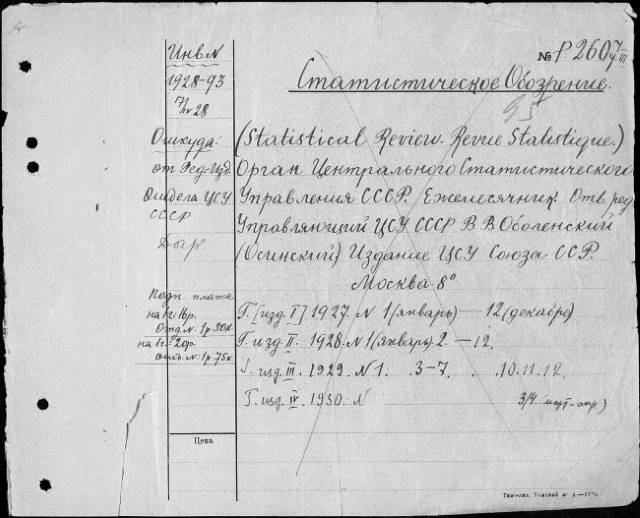 Инв. N
1928-93
17/IV 28
Откуда:
от Ред-Изд.
Отдела ЦСУ
СССР
Дар
Подп. плата
на 1 г: 16 р.
Отд. N: 1 р 50 к.
на 1 г.- 20 р.
отд. N: 1 р. 75 к.
Цена
№ Р. 2607
Статистическое Обозрение.
(Statistical Review. Revue Statistique.)
Орган Центрального Статистического
Управления СССР. Ежемесячник. Отв. ред
Управляющий ЦСУ СССР В. В. Оболенский
(Осинский) Издание ЦСУ Союза ССР.
Москва. 8°
Г. [изд. I] 1927. N 1 (январь) — 12 (декабрь)
Г. изд. II. 1928. N 1 (январь) 2 — 12.
Г. изд. III. 1929. N 1. 3-7. 10. 11. 12.
Г. изд. IV 1930. N 3/4